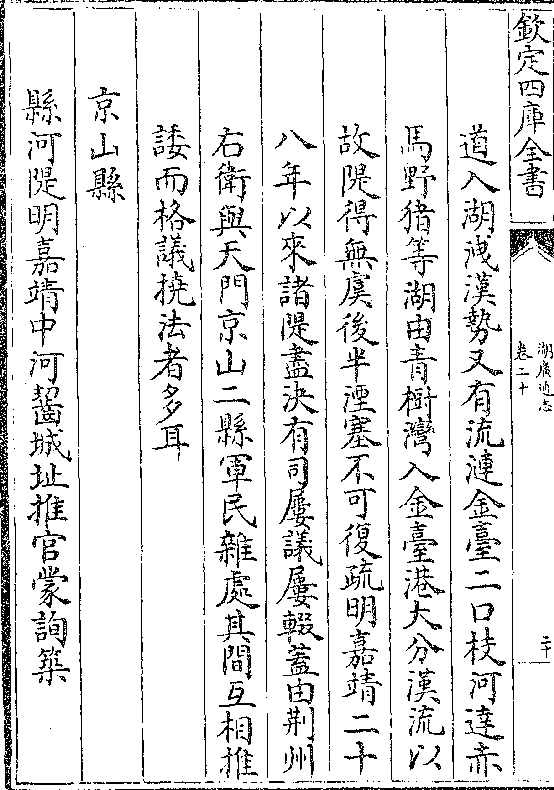 欽定四庫全書
湖廣通志
卷二十
二十
道入湖洩漢勢又有流漣金臺二口枝河達赤
馬野猪等湖由青樹灣入金臺港大分漢流以
故隄得無虞後半湮塞不可復疏明嘉靖二十
八年以來諸隄盡決有司屢議屢輟蓋由荆州
右衛與天門京山二縣軍民雜處其間互相推
諉而格議撓法者多耳
京山縣
縣河隄明嘉靖中河齧城址推官蒙詢築